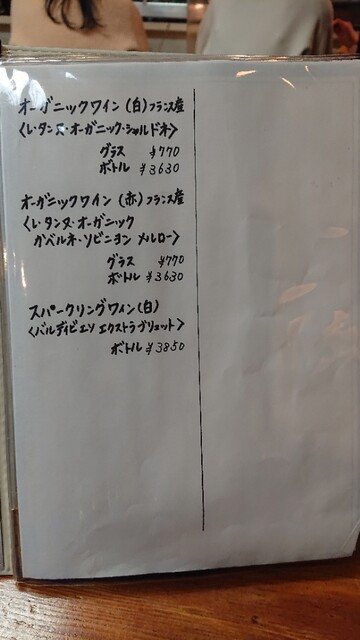 オーガニックワイン(白)フランス産
<レ・タンヌ・オーガニック・シャルドネ>
グラス ¥770
ボトル ¥3630
オーガニックワイン(赤)フランス産
<レ・タンヌ・オーガニック
カベルネ・ソビニヨン メルロー>
グラス ¥770
ボトル ¥3630
スパークリングワイン(白)
<バルディビエソ エクストラブリュット>
ボトル ¥3850